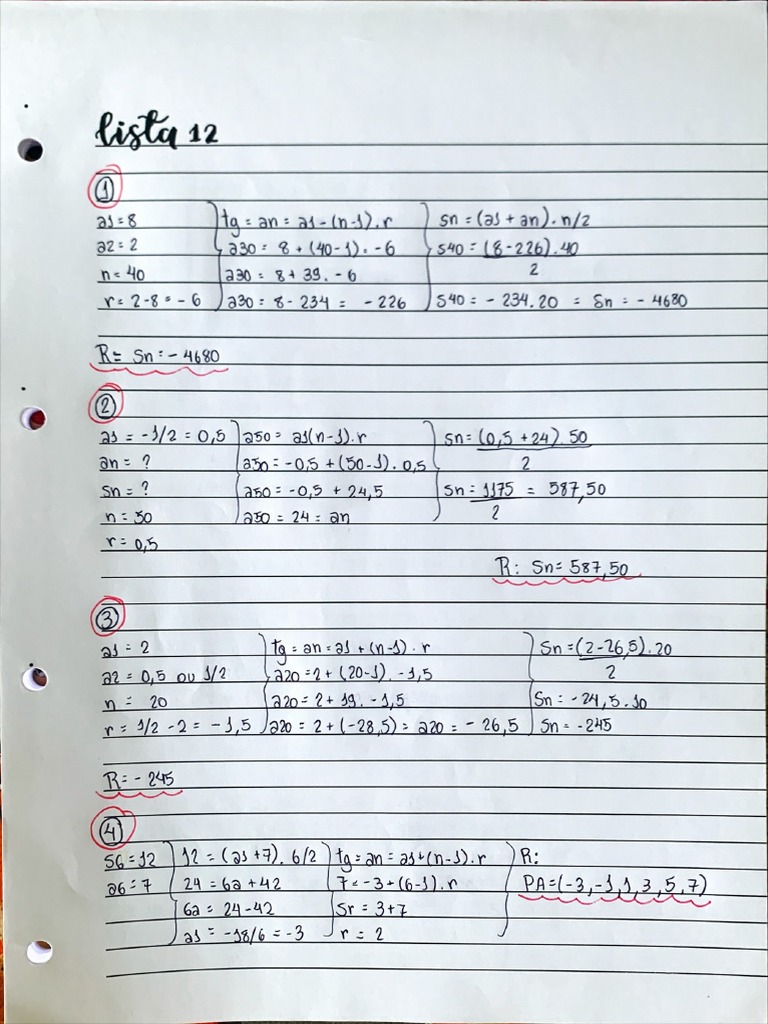 lista 12
1
a1 = 8
a2 = 2
n = 40
r = 2-8 = -6
tg = an = a1 - (n-1) . r
a30 = 8 + (40-1) . -6
a30 = 8 + 39 . -6
a30 = 8 - 234 = -226
sn = (a1 + an) . n/2
s40 = (8-226) . 40
2
s40 = -234.20 = Sn = -4680
R = Sn = -4680
2
a1 = -1/2 = 0,5
an = ?
sn = ?
n = 50
r = 0,5
a50 = a1(n-1) . r
a50 = -0,5 + (50-1) . 0,5
a50 = -0,5 + 24,5
a50 = 24 = an
Sn = (0,5 + 24) . 50
2
Sn = 1175 = 587,50
2
R: Sn = 587,50
3
a1 = 2
a2 = 0,5 ou 1/2
n = 20
r = 1/2 - 2 = -1,5
tg = an = a1 + (n-1) . r
a20 = 2 + (20-1) . -1,5
a20 = 2 + 19 . -1,5
a20 = 2 + (-28,5) = a20 = -26,5
Sn = (2-26,5) . 20
2
Sn = -24,5 . 10
Sn = -245
R = -245
4
S6 = 12
a6 = 7
12 = (a1 + 7) . 6/2
24 = 6a + 42
6a = 24-42
a1 = -18/6 = -3
tg = an = a1 + (n-1) . r
7 = -3 + (6-1) . r
5r = 3+7
r = 2
R:
PA = (-3, -1, 1, 3, 5, 7)